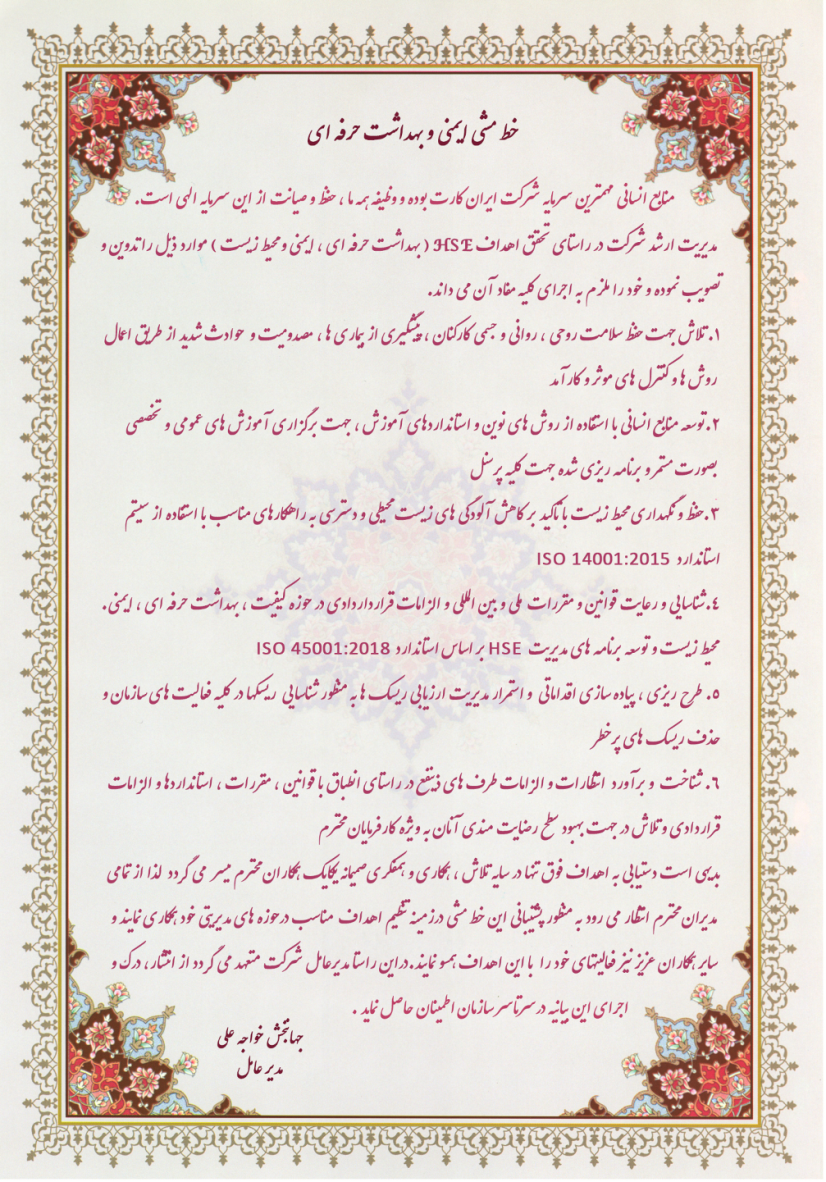 خط مشی ایمنی و بهداشت حرفه ای
منابع انسانی مهمترین سرمایه شرکت ایران کارت بوده و وظیفه همه ما ، حفظ و صیانت از این سرمایه الهی است.
مدیریت ارشد شرکت در راستای تحقق اهداف HSE ( بهداشت حرفه ای ، ایمنی و محیط زیست ) موارد ذیل را تدوین و
تصویب نموده و خود را ملزم به اجرای کلیه مفاد آن می داند.
۱. تلاش جهت حفظ سلامت روحی ، روانی و جسمی کارکنان ، پیشگیری از بیماری ها ، مصدومیت و حوادث شدید از طریق اعمال
روش ها و کنترل های موثر و کارآمد
۲. توسعه منابع انسانی با استفاده از روش های نوین و استانداردهای آموزش ، جهت برگزاری آموزش های عمومی و تخصصی
بصورت مستمر و برنامه ریزی شده جهت کلیه پرسنل
۳. حفظ و نگهداری محیط زیست با تأکید بر کاهش آلودگی های زیست محیطی و دستری به راهکارهای مناسب با استفاده از سیستم
استاندارد ISO 14001:2015
٤. شناسایی و رعایت قوانین و مقررات ملی و بین المللی و الزامات قراردادردادی در حوزه کیفیت ، بهداشت حرفه ای ، ایمنی.
محیط زیست و توسعه برنامه های مدیریت HSE بر اساس استاندارد ISO 45001:2018
٥. طرح ریزی ، پیاده سازی اقداماتی و استمرار مدیریت ارزیابی ریسک ها به منظور شناسایی ریسکها در کلیه فعالیت های سازمان و
حذف ریسک های پرخطر
٦. شناخت و برآورد انتظارات و الزامات طرف های ذینفع در راستای انطباق با قوانین ، مقررات ، استانداردها و الزامات
قراردادی و تلاش در جهت بهبود سطح رضایت مندی آنان به ویژه کارفرمایان محترم
بدیهی است دستیابی به اهداف فوق تنها در سایه تلاش ، همکاری و همفکری صمیمانه یکایک همکاران محترم میسر می گردد لذا از تمامی
مدیران محترم انتظار می رود به منظور پشتیبانی این خط مشی درزمینه تنظیم اهداف مناسب درحوزه های مدیریتی خود همکاری نمایند و
سایر همکاران عزیز نیز فعالیتهای خود را با این اهداف همسو نمایند. دراین راستا مدیرعامل شرکت متعهد می گردد از انتشار ، درک و
اجرای این بیانیه در سرتاسر سازمان اطمینان حاصل نماید .
جهانبخش خواجه علی
مدیر عامل